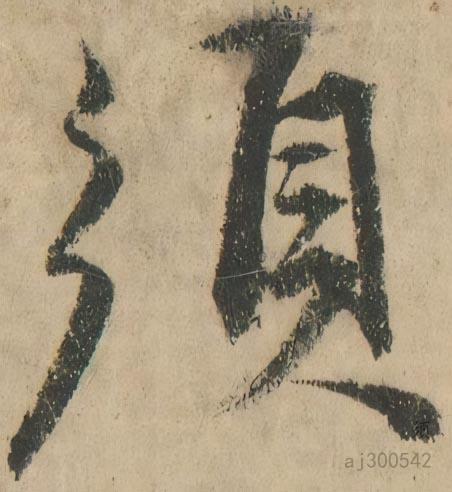 須
aj300542